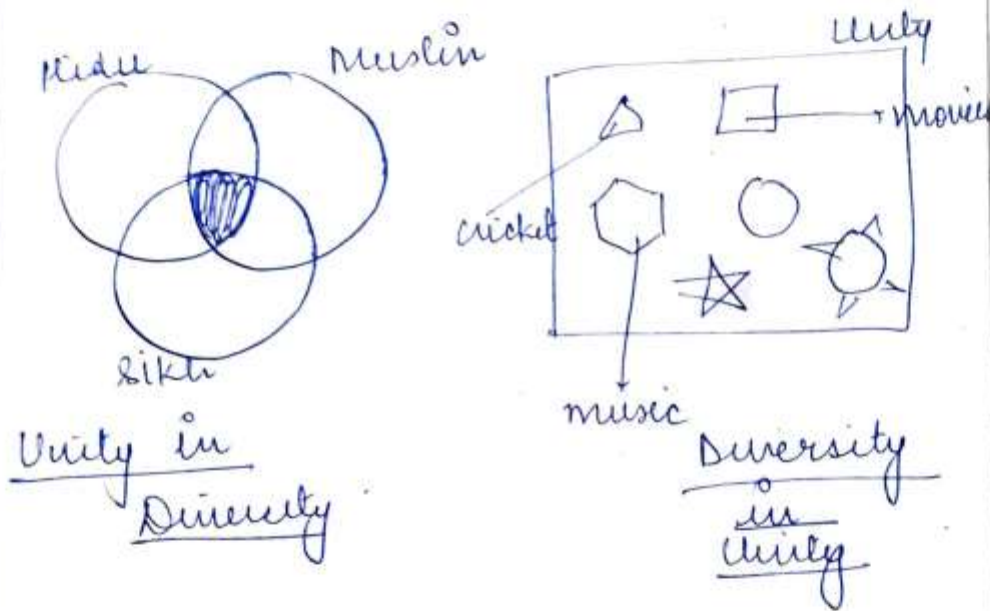 Hidu
Muslin
Sikh
Unity in
Diversity
Unity
movies
cricket
music
Diversity
in
Unity